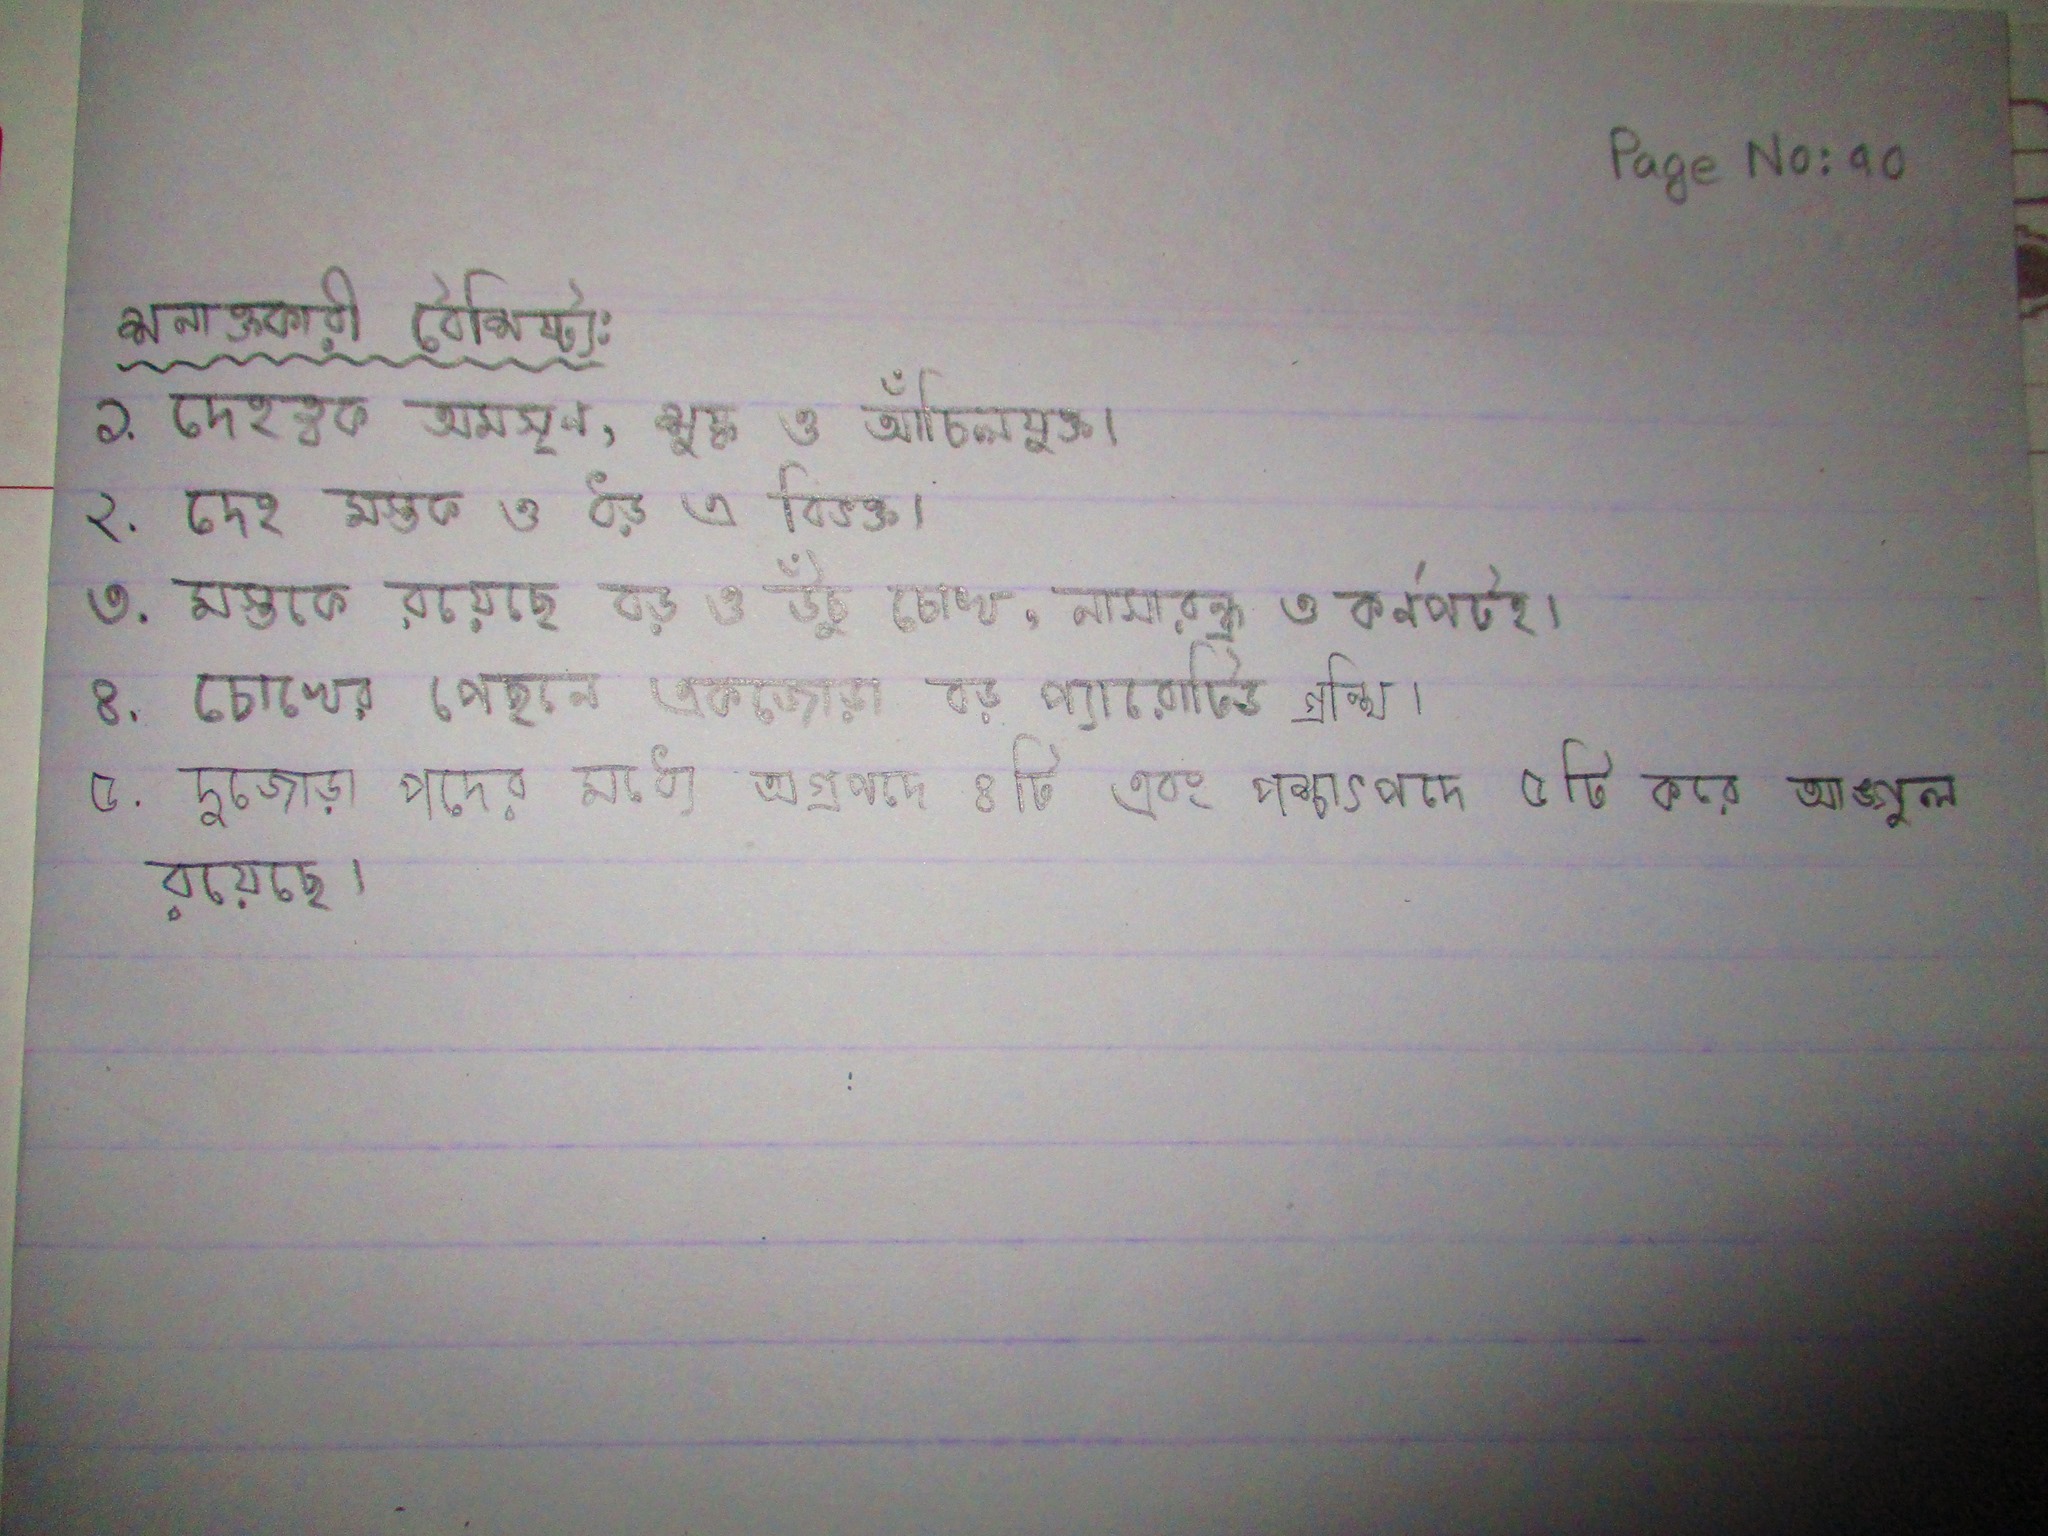 Page No: ৭০
শনাক্তকারী বৈশিষ্ট্যঃ
১. দেহত্বক অমসৃন, শুষ্ক ও আঁচিলযুক্ত।
২. দেহ মস্তক ও ধড় এ বিভক্ত।
৩. মস্তকে রয়েছে বড় ও উঁচু চোখ, নাসারন্ধ্র ও কর্নপটহ।
৪. চোখের পেছনে একজোড়া বড় প্যারোটিড গ্রন্থি।
৫. দুজোড়া পদের মধ্যে অগ্রপদে ৪টি এবং পশ্চাৎপদে ৫টি করে আঙ্গুল
রয়েছে।